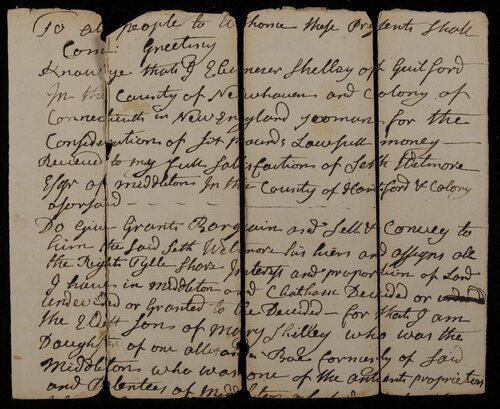 To all people to whome these Presents Shall
Com: Greeting
Know ye that I Ebenezer Shelley of Guilford
In the County of Newhaven and Colony of
Connecticutt in New England yeoman for the
Consideration of six pounds Lawfull money
Received to my full Satisfaction of Seth Wetmore
Esqr of middleton In the County of Hartford & Colony
aforsaid
Do Give Grant Bargain and Sell & Convey to
him the Said Seth Wetmore his hiers and assigns all
the Right Tytle Share Interest and proportion of Land
I have in Middleton and Chatham Devided or
undevided or Granted to be Devided - for that I am
the Eldest Son of Mary Shelley who was the
Daughter of one Alexander Bow formerly of Said
Middleton who was one of the antient proprietors
and Patentees of